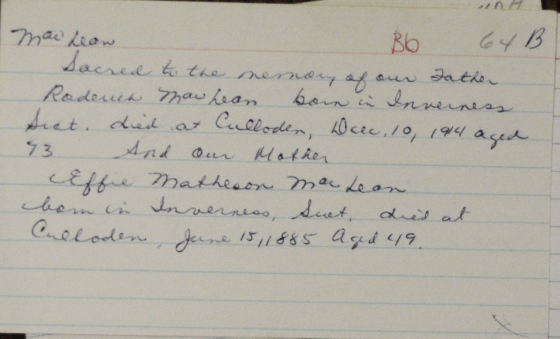 MacLean B6 64 B
Sacred to the memory of our Father
Roderick MacLean born in Inverness
Scot. died at Culloden, Dec. 10, 1914 aged
93 And Our Mother
Effie Matheson MacLean
born in Inverness, Scot. died at
Culloden, June 15, 1885 Aged 49.